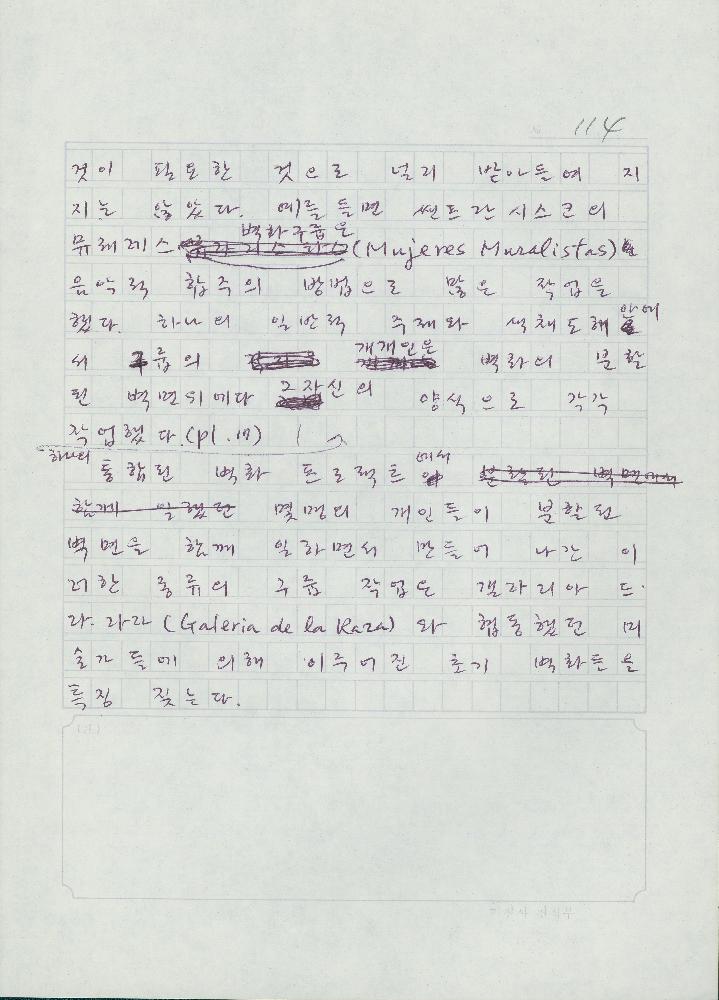 114
것이 필요한 것으로 널리 받아들여 지
지는 않았다. 예를 들면 쌘프란시스코의
벽화구룹은
뮤헤레스 (Mujeres Muralistas)
음악적 합주의 방법으로 많은 작업을
했다. 하나의 일반적 주제와 색채도해 안에
서 구룹의 개개인은 벽화의 분할
된 벽면위에다 그 자신의 양식으로 각각
작업했다.(pl.17)
하나의
통합된 벽화 프로젝트에서 분할된 벽면에서
함께 일했던 몇명의 개인들이 분할된
벽면을 함께 일하면서 만들어 나간 이
러한 종류의 구룹 작업은 갤라리아 드·
라·라라 (Galeria de la Raza) 와 협동했던 미
술가들에 의해 이루어진 초기 벽화들을
특징 짖는다.